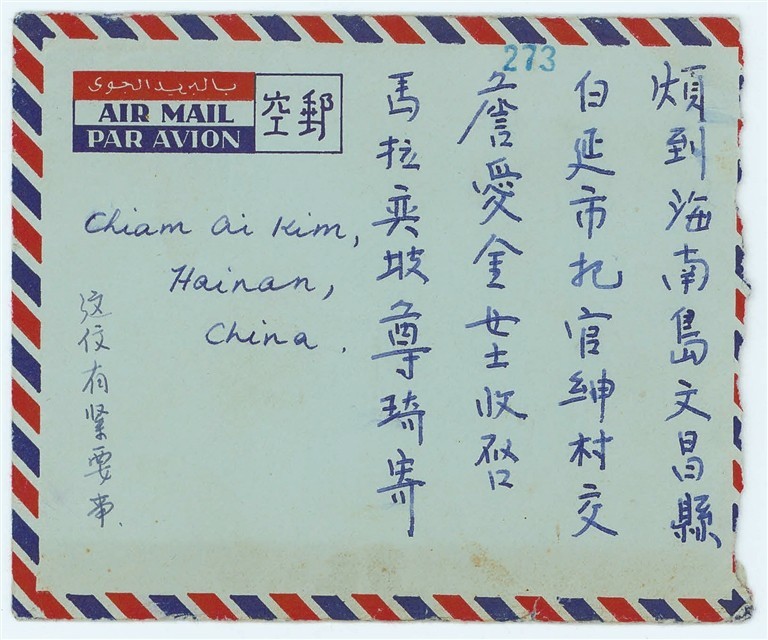 273
بالبريد الجوى
AIR MAIL
PAR AVION
空郵
煩到海南島文昌縣
白延市官紳村交
詹愛金女士收啓
馬拉奕坡尊琦寄
Chiam Ai Kim,
Hainan,
China.
这伩有緊要事